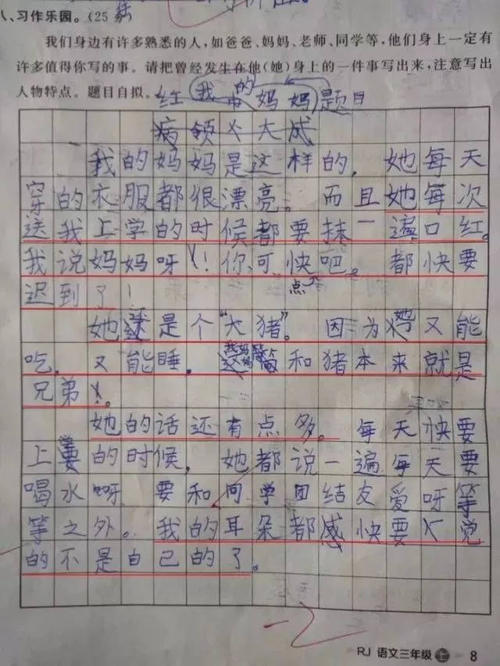 八、习作乐园。(25
我们身边有许多熟悉的人,如爸爸、妈妈、老师、同学等,他们身上一定有
许多值得你写的事。请把曾经发生在他(她)身上的一件事写出来,注意写出
人物特点。题目自拟。
红 我的妈妈 题目
大成
我的妈妈是这样的,她每天
穿的衣服都很漂亮。而且她每次
送我上学的时候都要抹一遍口红。
我说妈妈呀!你可快点吧。都快要
迟到了!
她还是个“大猪”。因为她又能
吃,又能睡,我妈妈和猪本来就是
兄弟
她的话还有点多。每天快要
上学的时候,她都说一遍每天要
喝水呀要和同学团结友爱呀等
等之外。我的耳朵都感快要觉
的不是自己的了。
RJ 语文三年级 上 8